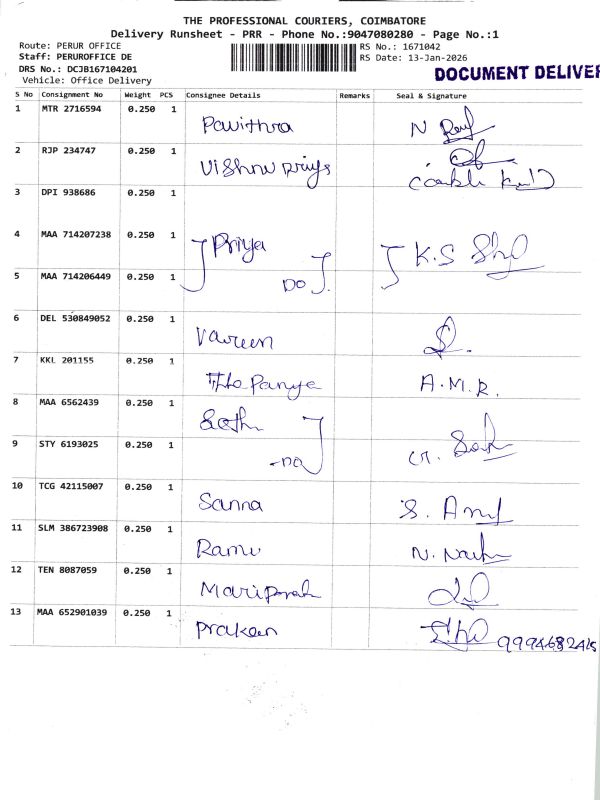 THE PROFESSIONAL COURIERS, COIMBATORE
Delivery Runsheet - PRR - Phone No.:9047080280 - Page No.:1
Route: PERUR OFFICE
RS No.: 1671042
Staff: PERUROFFICE DE
RS Date: 13-Jan-2026
DRS No.: DCJB167104201
DOCUMENT DELIVER
Vehicle: Office Delivery
S No Consignment No Weight PCS Consignee Details Remarks Seal & Signature
1 MTR 2716594 0.250 1 Pavithra N
2 RJP 234747 0.250 1 Vishnu Priya
3 DPI 938686 0.250 1
4 MAA 714207238 0.250 1 Priya K.S
5 MAA 714206449 0.250 1 DO
6 DEL 530849052 0.250 1
7 KKL 201155 0.250 1 A.M.R.
8 MAA 6562439 0.250 1
9 STY 6193025 0.250 1 -DO
10 TCG 42115007 0.250 1 Sanna S.
11 SLM 386723908 0.250 1 Ramu N.
12 TEN 8087059 0.250 1
13 MAA 652901039 0.250 1